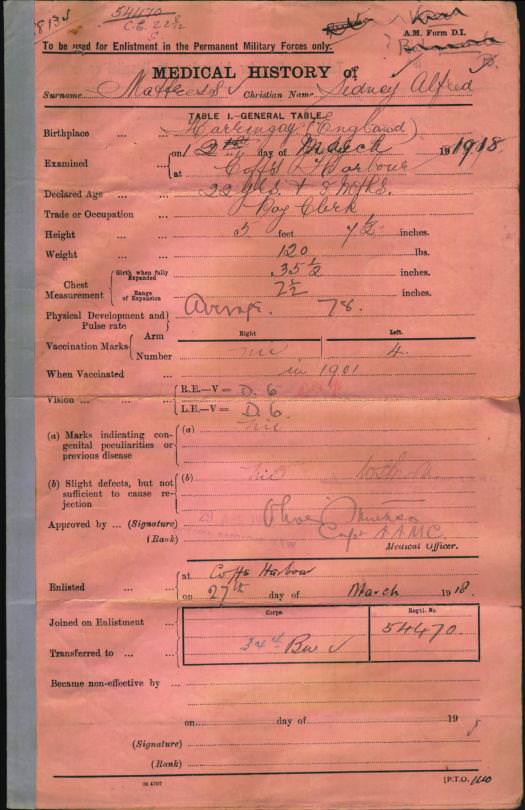 54470
A.M. Form D.I.
To be used for Enlistment in the Permanent Military Forces only.
MEDICAL HISTORY of
Surname Christian Name Sidney Alfred
TABLE I.—GENERAL TABLE.
Birthplace ... ... Harringay (England)
Examined ... ... on day of March 1918
at Coffs Harbour
Declared Age ... ... 22 yrs. + 5 mths.
Trade or Occupation ... Clerk
Height ... ... 5 feet 7 1/2 inches.
Weight ... ... 120 lbs.
Chest Measurement Girth when fully Expanded 35 1/2 inches.
Range of Expansion 2 1/2 inches.
Physical Development and Pulse rate Average. 78.
Right Left.
Vaccination Marks Arm
Number nil 4.
When Vaccinated ... in 1901
Vision ... ... R.E.—V = D. 6
L.E.—V = D. 6.
(a) Marks indicating congenital peculiarities or previous disease (a) nil
(b) Slight defects, but not sufficient to cause rejection (b) nil
Approved by ... (Signature)
(Rank) Capt AAMC.
Medical Officer.
Enlisted ... ... at Coffs Harbour
on 27th day of March 1918.
Corps. Regtl. No.
Joined on Enlistment ... 54470.
Transferred to ... ... 34th Bn
Became non-effective by ...
on day of 19
(Signature)
(Rank)
[P.T.O.